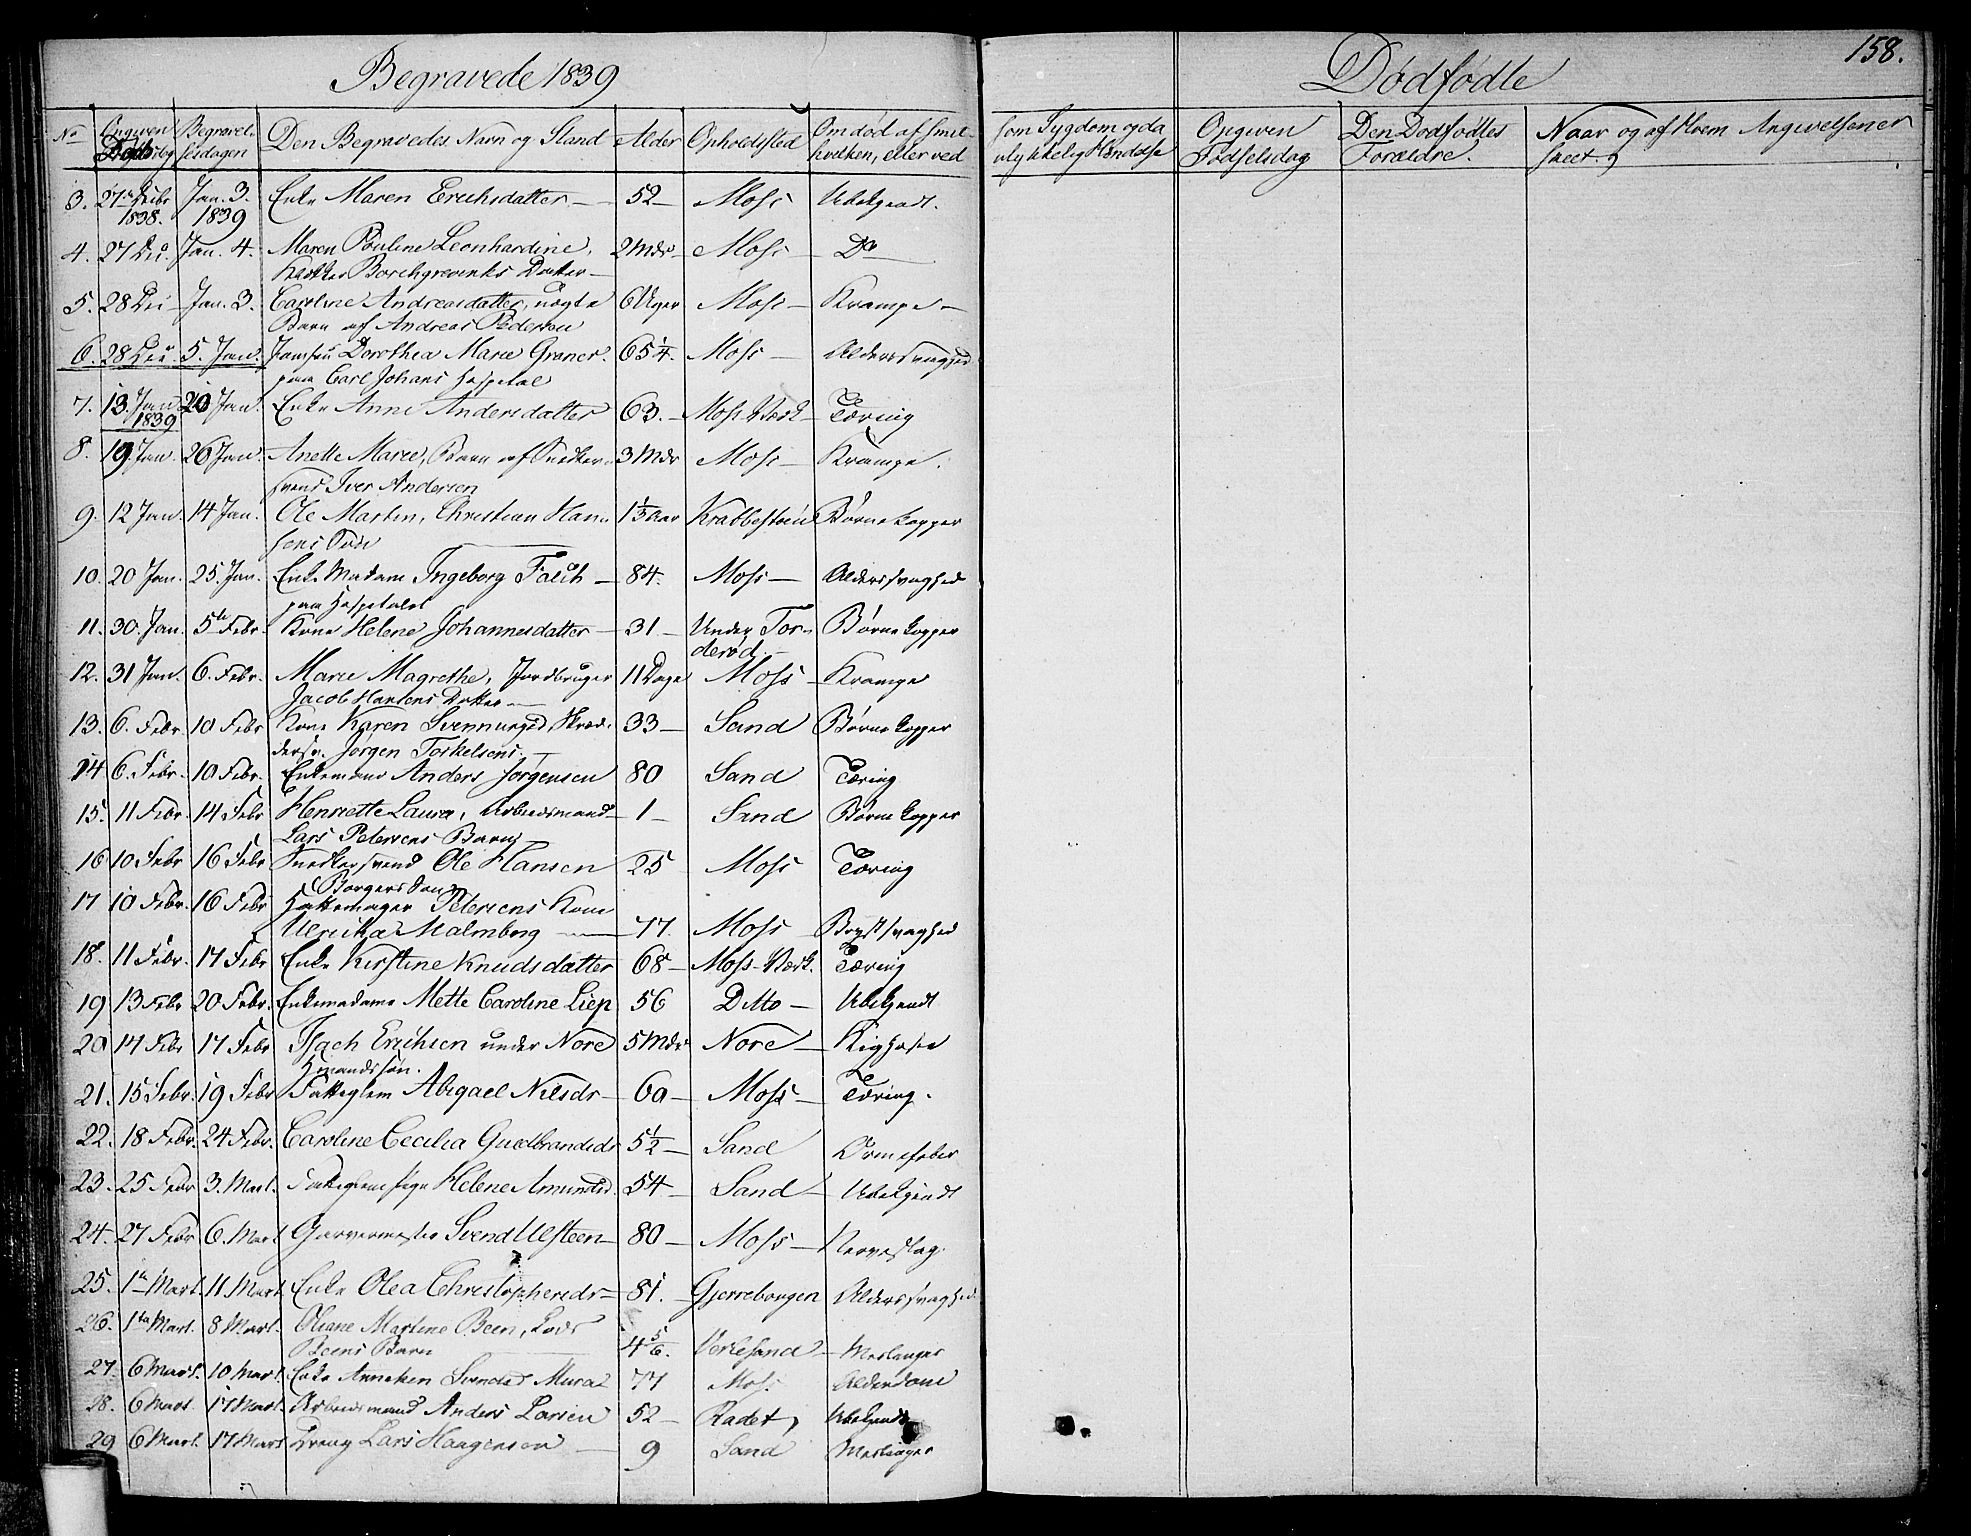 Begravede 1839
Dødfødte
158.
No Opgiven Dødsdag Begravelsesdagen Den Begravedes Navn og Stand Alder Opholdssted Om død af smel-
hvilken, eller ved
som Sygdom og da
ulykkelig Hændelse
Opgiven
Fødselsdag
Den Dødfødtes
Forældre.
Naar og af Hvem Angivelsen er
skeet
3. 27 1838. Jan. 3. 1839 Enke Maren Erichsdatter — 52 — Moss Ubekjendt.
4. 27 Jan. 4. Maren Pouline Leonhardine, 2 Mdr — Moss — Do
Borchgrevinks Datter —
5. 28 Jan. 3. Caroline Andreasdatter, uægte 6 Uger Moss — Krampe —
Barn af Andreas Pedersen
6. 28 5. Jan. Jomfru Dorothea Marie Graner. 65 1/4. Moss — Alderssvaghed
paa Carl Johans Hospital
7. 13. Jan 1839 20 Jan. Enke Anne Andersdatter 63. — Moss Værk — Tæring
8. 19. Jan. 26 Jan. Anette Marie, Barn af Snedker- 3 Mdr Moss — Krampe.
svend Iver Andersen
9. 12 Jan. 14 Jan. Ole Martin, Christian Han- 1 1/3 Aar Krabbesteen Børnekopper
sens Søn
10. 20 Jan. 25. Jan. Enke Madam Ingeborg Falch — 84. Moss — Alderssvaghed
paa Hospitalet
11. 30. Jan. 5te Febr. Kone Helene Johannesdatter — 31 — Under Tor- Børnekopper
derød. —
12. 31 Jan. 6. Febr. Marie Magrethe, Jordbruger 11 Dage Moss — Krampe
Jacob Hansens Datter —
13. 6. Febr. 10 Febr Kone Karen Svennungsd. Skræd- 33 — Sand Børnekopper
ders. Jørgen Torkelsens. —
14 6. Febr. 10 Febr. Enkemand Anders Jørgensen 80 Sand Tæring
15. 11 Febr. 14 Febr Henriette Laura, Arbeidsmand — 1 — Sand Børnekopper
Lars Petersens Barn —
16 10 Febr 16 Febr Snedkersvend Ole Hansen 25 Moss Tæring
(Borgersøn
17 10 Febr. 16 Febr Hattemager Petersens Kone
Ulricka Malmberg — 77. Moss — Brystsvaghed
18. 11 Febr. 17 Febr Enke Kirstine Knudsdatter 68 — Moss-Værk. Tæring
19 13 Febr 20 Febr. Enkemadame Mette Caroline Liep 56 Ditto — Ubekjendt
20 14 Febr 17 Febr Isach Erichsen under Nore 5 Mdr Nore — Kighoste
Hmandssøn.
21. 15 Febr. 19 Febr Fattiglem Abigael Nilsdr — 60 — Moss — Tæring.
22. 18 Febr. 24 Febr. Caroline Cecilia Gudbrandsdr 5 1/2 — Sand Ormefeber
23. 25 Febr 3. Mart. Helene Amundsd. 54 — Sand — Ubekjendt
24. 27 Febr 6. Mart Garvermester Svend Ulsteen — 80 — Moss — Nerveslag.
25. 1te Mart. 11 Mart Enke Olea Christophersdr — 81. Gjerrebougen Alderssvaghed
26. 1te Mart. 8 Mart. Oliane Martine Been, Lods
Beens Barn 4 5/6. Verlesand — Meslinger
27. 6 Mart. 10 Mart. Enke Anneken Svendsd. Mura 77 Moss Alderdom
28. 6 Mart. 17 Mart. Arbeidsmand Anders Larsen 52 — Radet, Ubekjendt
29 6 Mart. 17 Mart Dreng Lars Haagensen — 9 Sand — Meslinger